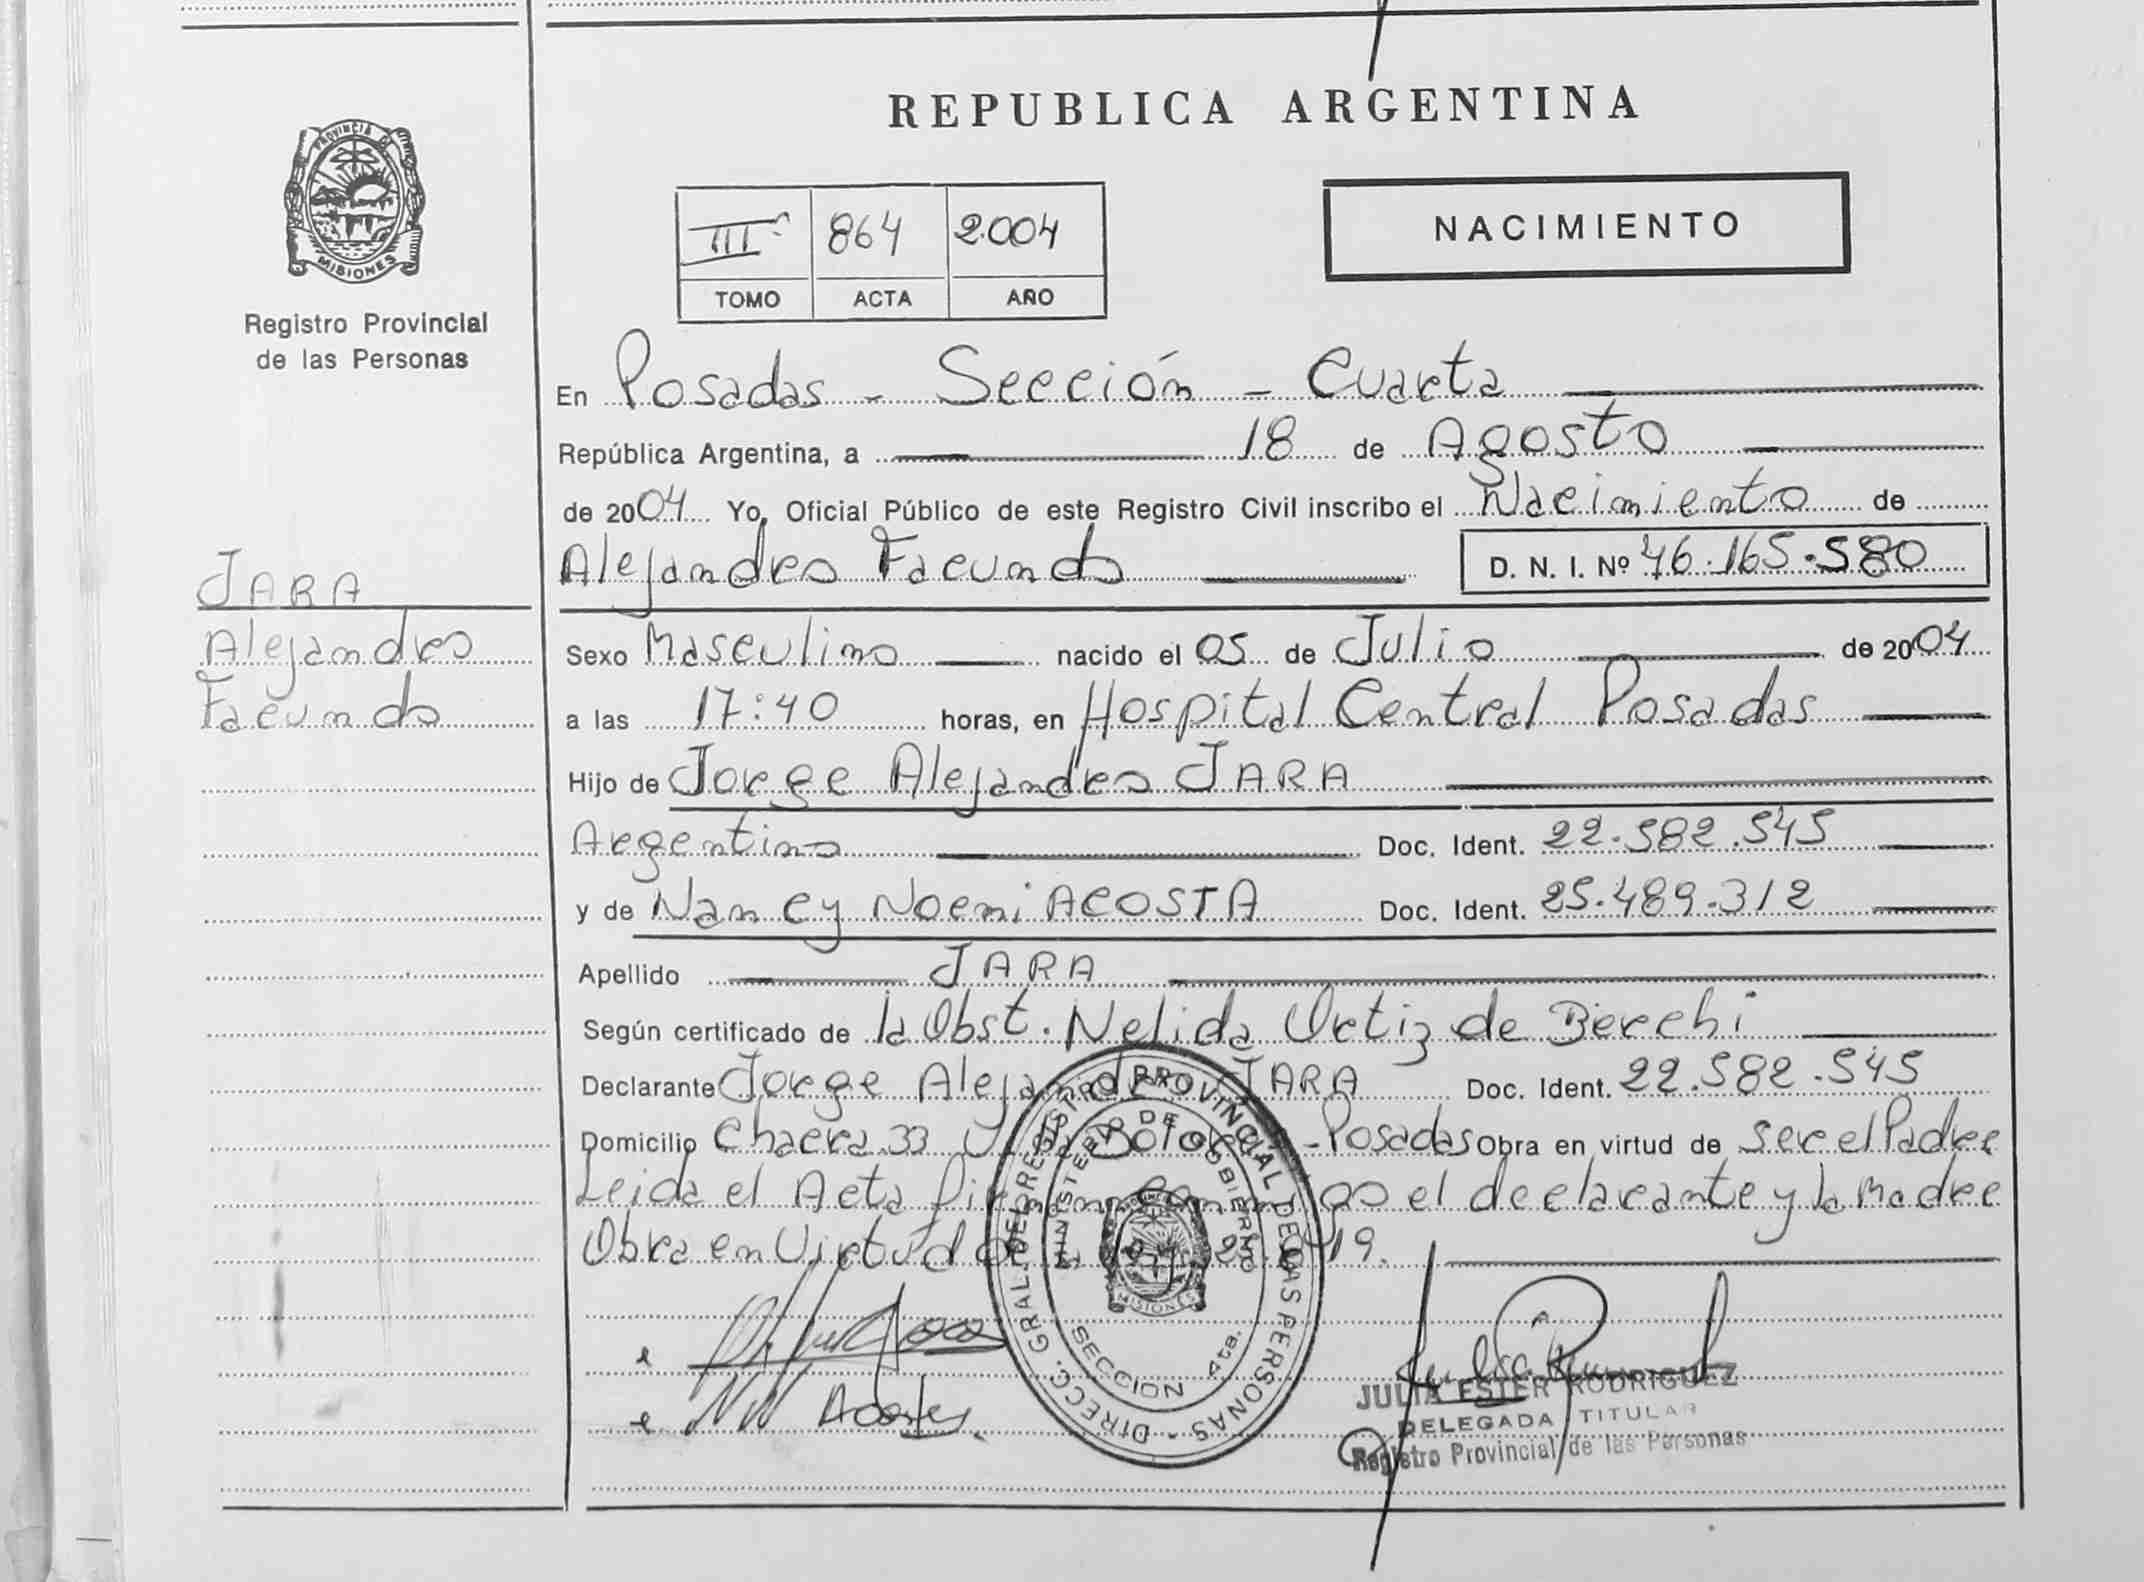 PROVINCIA DE
MISIONES
Registro Provincial
de las Personas
JARA
Alejandro
Facundo
REPUBLICA ARGENTINA
III 864 2004
TOMO ACTA AÑO
NACIMIENTO
En Posadas - Sección - Cuarta
República Argentina, a 18 de Agosto
de 2004 Yo, Oficial Público de este Registro Civil inscribo el Nacimiento de
Alejandro Facundo D. N. I. Nº 46.165.580
Sexo Masculino nacido el 05 de Julio de 2004
a las 17:40 horas, en Hospital Central Posadas
Hijo de Jorge Alejandro JARA
Argentino Doc. Ident. 22.582.545
y de Nancy Noemi ACOSTA Doc. Ident. 25.489.312
Apellido JARA
Según certificado de la Obst. Nelida Ortiz de Berchi
Declarante Jorge Alejandro JARA Doc. Ident. 22.582.545
Domicilio Chacra 33 - Posadas Obra en virtud de ser el Padre
Leida el Acta el declarante y la Madre
Obra en Virtud 19.
DIRECC. GRAL. DEL REGISTRO PROVINCIAL DE LAS PERSONAS -
MINISTERIO DE GOBIERNO
MISIONES
SECCION 4ta.
N N Acosta
JULIA ESTER RODRIGUEZ
DELEGADA TITULAR
Registro Provincial de las Personas